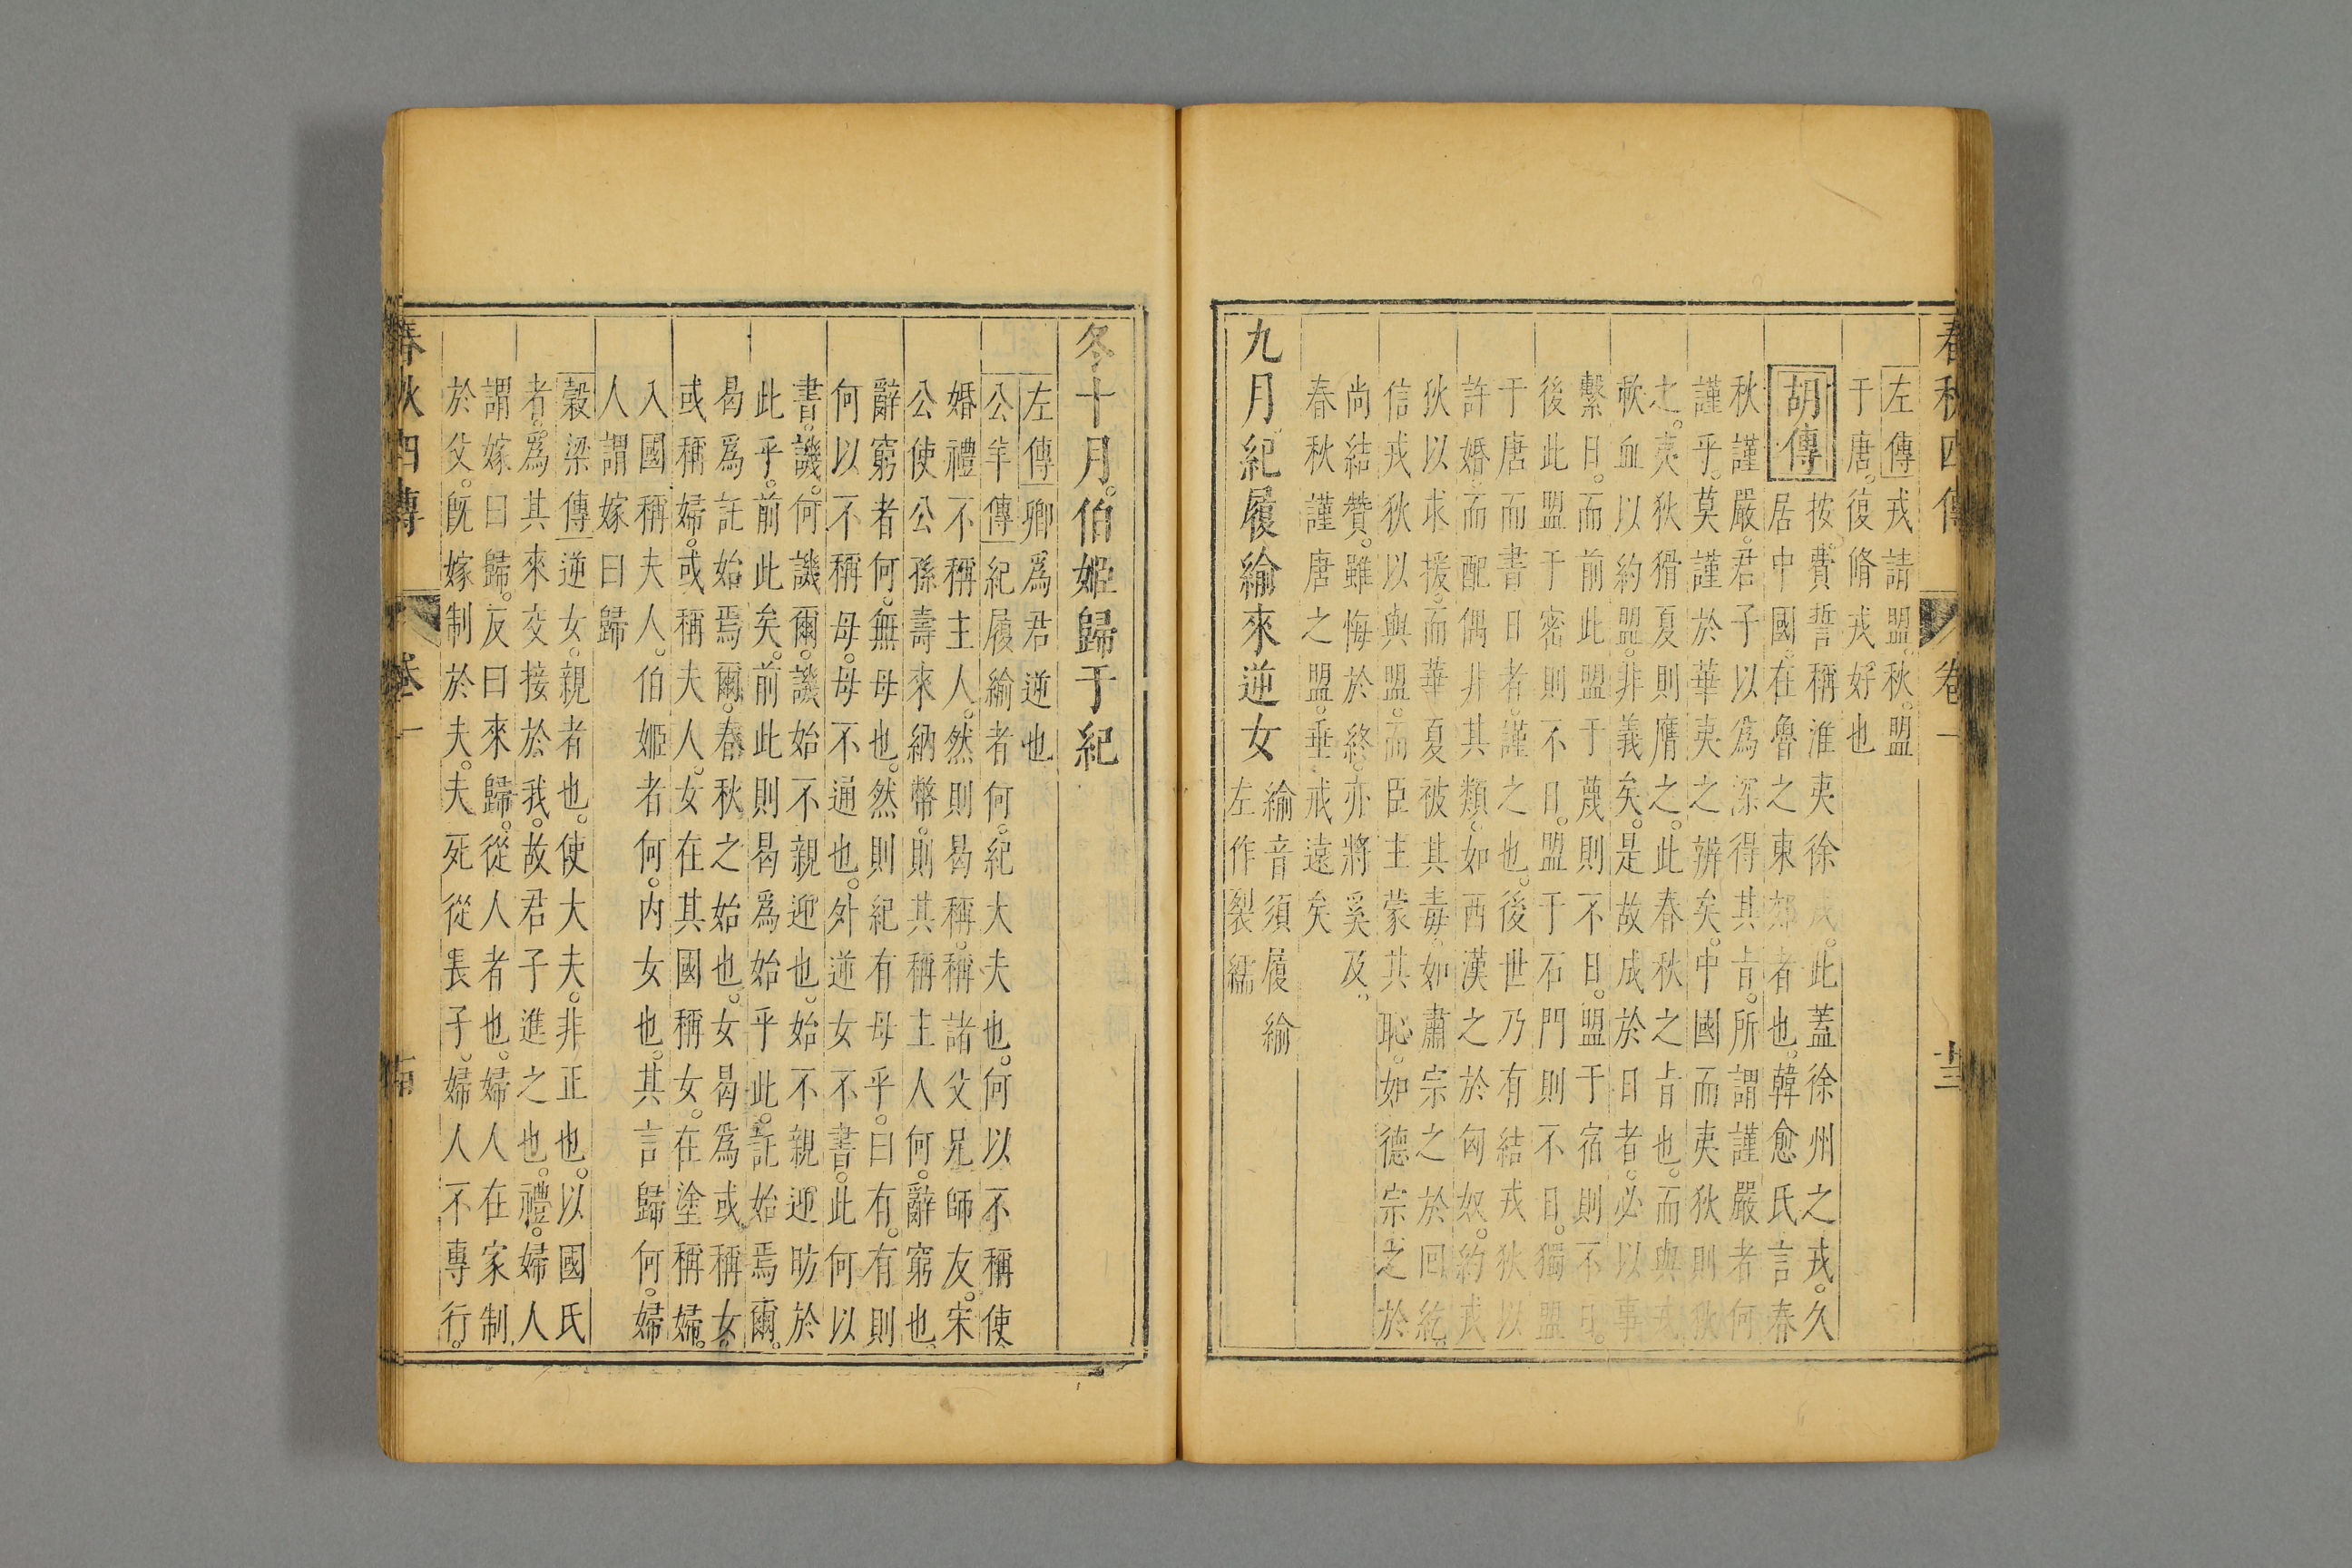 春秋四傳 卷一 十三
左傳戎請盟。秋。盟
于唐。復脩戎好也
胡傳按費誓稱淮夷徐戎。此蓋徐州之戎。久
居中國。在魯之東郊者也。韓愈氏言春
秋謹嚴。君子以爲深得其旨。所謂謹嚴者何
謹乎。莫謹於華夷之辨矣。中國而夷狄則狄
之。夷狄猾夏則膺之。此春秋之旨也。而與戎
歃血以約盟。非義矣。是故成於日者。必以事
繫日。而前此盟于蔑則不日。盟于宿則不日。
後此盟于密則不日。盟于石門則不日。獨盟
于唐而書日者。謹之也。後世乃有結戎狄以
許婚。而配偶非其類。如西漢之於匈奴。約戎
狄以求援。而華夏被其毒。如肅宗之於回紇。
信戎狄以與盟。而臣主蒙其恥。如德宗之於
尚結贊。雖悔於終。亦將奚及。
春秋謹唐之盟。垂戒遠矣
九月紀履緰來逆女緰音須履緰
左作裂繻
冬十月。伯姬歸于紀
左傳卿爲君逆也
公羊傳紀履緰者何。紀大夫也。何以不稱使
婚禮不稱主人。然則曷稱。稱諸父兄師友。宋
公使公孫壽來納幣。則其稱主人何。辭窮也。
辭窮者何。無母也。然則紀有母乎。曰有。有則
何以不稱母。母不通也。外逆女不書。此何以
書。譏。何譏爾。譏始不親迎也。始不親迎昉於
此乎。前此矣。前此則曷爲始乎此。託始焉爾。
曷爲託始焉爾。春秋之始也。女曷爲或稱女。
或稱婦。或稱夫人。女在其國稱女。在塗稱婦。
入國稱夫人。伯姬者何。內女也。其言歸何。婦
人謂嫁曰歸
穀梁傳逆女。親者也。使大夫。非正也。以國氏
者。爲其來交接於我。故君子進之也。禮。婦人
謂嫁曰歸。反曰來歸。從人者也。婦人在家制
於父。旣嫁制於夫。夫死從長子。婦人不專行。
春秋四傳 卷一 十四